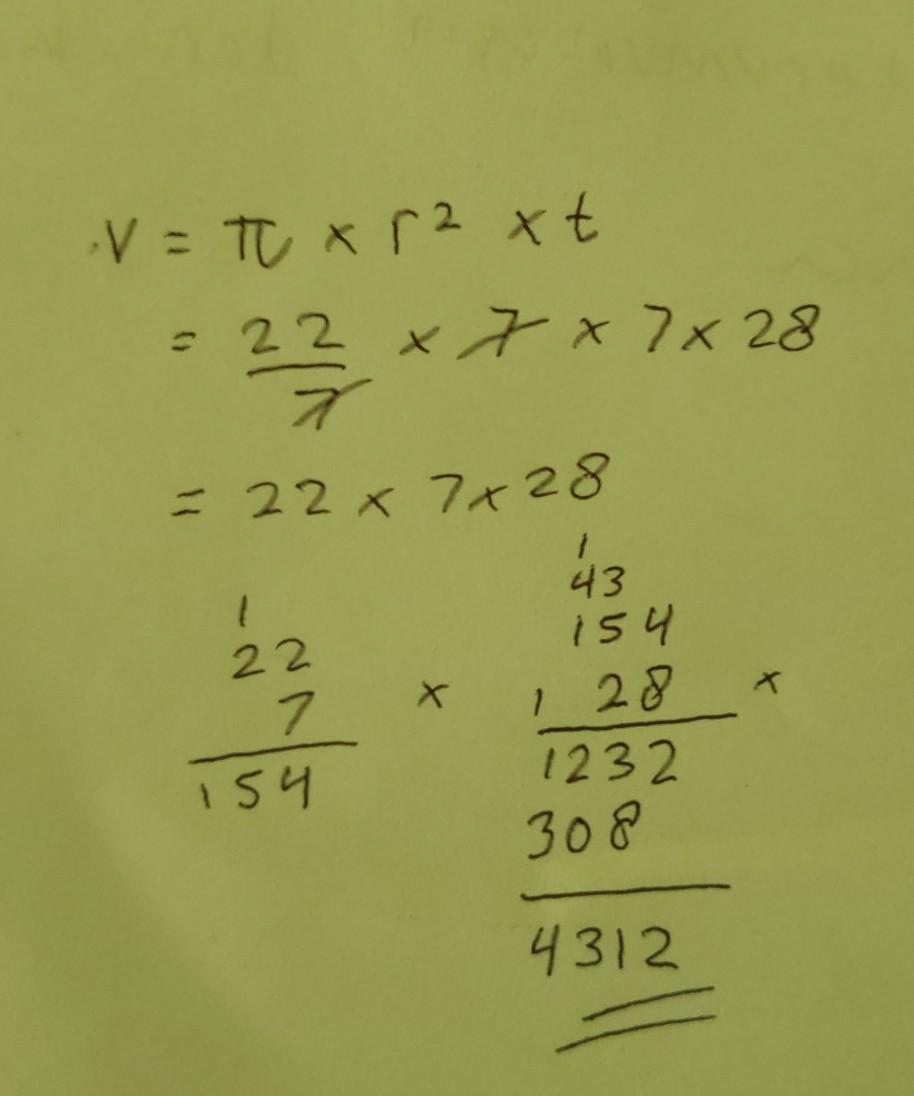 V = π × r² × t
= 22/7 × 7 × 7 × 28
= 22 × 7 × 28
1
22
7 ×
154
1
43
154
1 28 ×
1232
308
4312